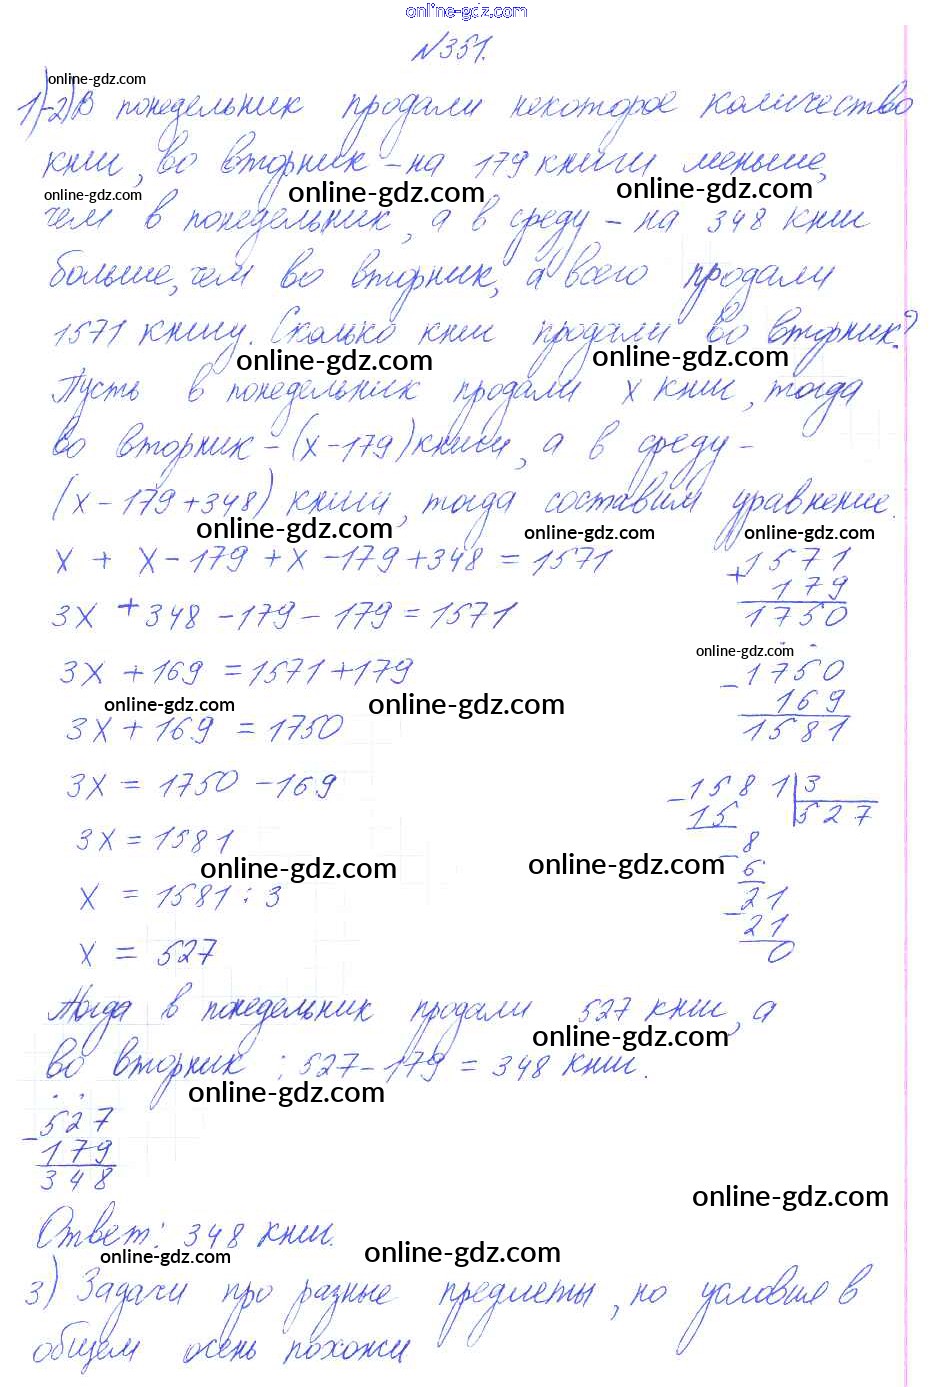 online-gdz.com
№351.
online-gdz.com
1)-2) В понедельник продали некоторое количество
книг, во вторник - на 179 книги меньше,
online-gdz.com online-gdz.com online-gdz.com
чем в понедельник, а в среду - на 348 книг
больше, чем во вторник, а всего продали
1571 книгу. Сколько книг продали во вторник?
online-gdz.com online-gdz.com
Пусть в понедельник продали x книг, тогда
во вторник - (x - 179) книги, а в среду -
(x - 179 + 348) книги, тогда составим уравнение.
online-gdz.com online-gdz.com online-gdz.com
x + x - 179 + x - 179 + 348 = 1571
3x + 348 - 179 - 179 = 1571
3x + 169 = 1571 + 179
online-gdz.com online-gdz.com
3x + 169 = 1750
3x = 1750 - 169
3x = 1581
online-gdz.com
x = 1581 : 3
x = 527
1571
+ 179
1750
online-gdz.com
- 1750
169
1581
- 1581 | 3
15 527
online-gdz.com
- 8
6
- 21
21
0
Тогда в понедельник продали 527 книг, а
online-gdz.com
во вторник : 527 - 179 = 348 книг.
online-gdz.com
- 527
179
348
online-gdz.com
Ответ: 348 книг.
online-gdz.com online-gdz.com
3) Задачи про разные предметы, но условия в
общем осень похожи